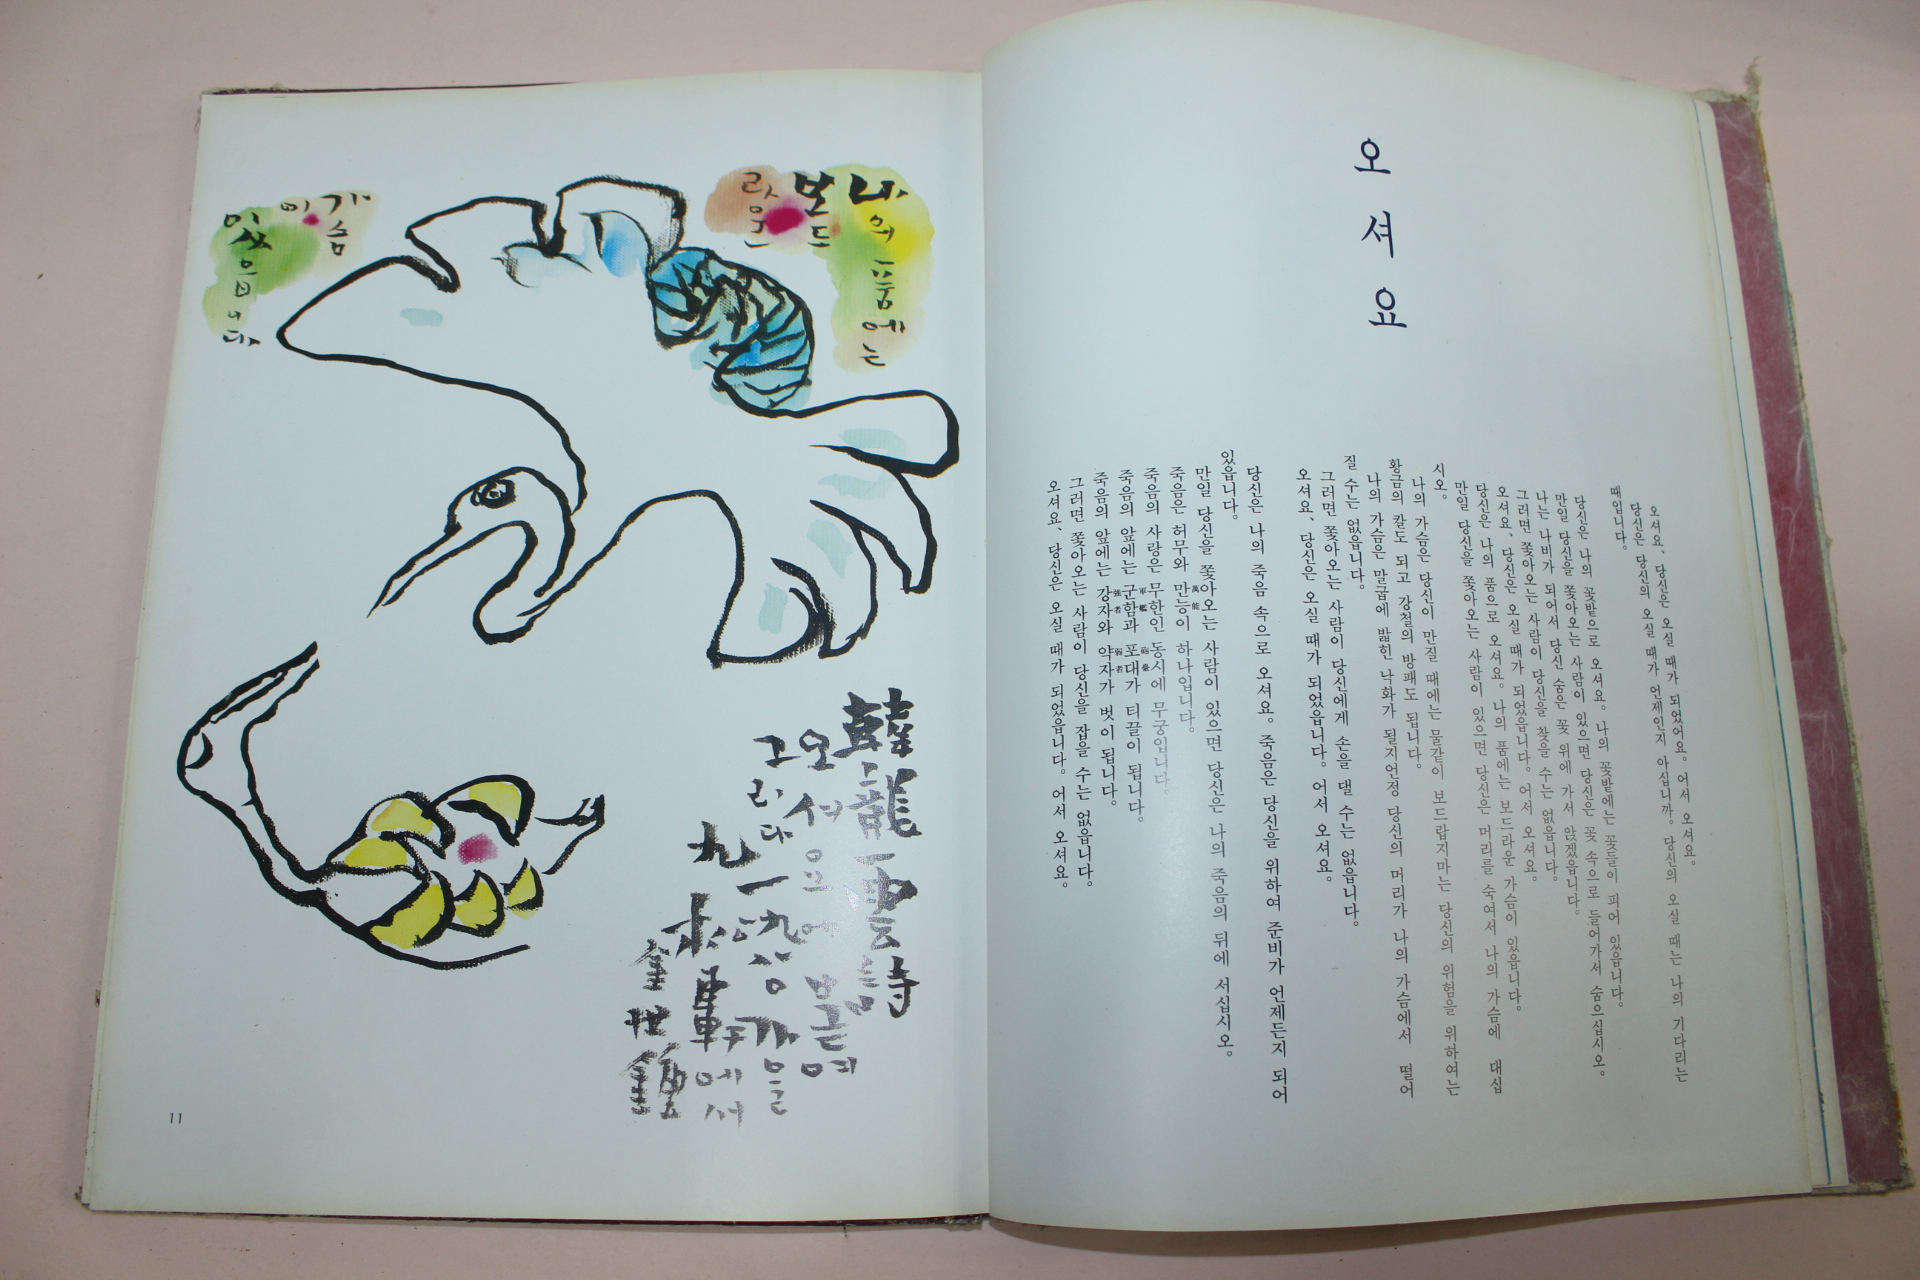 오셔요
오셔요、당신은 오실 때가 되었어요。어서 오셔요。
당신은 당신의 오실 때가 언제인지 아십니까。당신의 오실 때는 나의 기다리는
때입니다。
당신은 나의 꽃밭으로 오셔요。나의 꽃밭에는 꽃들이 피어 있읍니다。
만일 당신을 쫓아오는 사람이 있으면 당신은 꽃 속으로 들어가서 숨으십시오。
나는 나비가 되어서 당신 숨은 꽃 위에 가서 앉겠읍니다。
그러면 쫓아오는 사람이 당신을 찾을 수는 없읍니다。
오셔요、당신은 오실 때가 되었읍니다。어서 오셔요。
당신은 나의 품으로 오셔요。나의 품에는 보드라운 가슴이 있읍니다。
만일 당신을 쫓아오는 사람이 있으면 당신은 머리를 숙여서 나의 가슴에 대십
시오。
나의 가슴은 당신이 만질 때에는 물같이 보드랍지마는 당신의 위험을 위하여는
황금의 칼도 되고 강철의 방패도 됩니다。
나의 가슴은 말굽에 밟힌 낙화가 될지언정 당신의 머리가 나의 가슴에서 떨어
질 수는 없읍니다。
그러면 쫓아오는 사람이 당신에게 손을 댈 수는 없읍니다。
오셔요、당신은 오실 때가 되었읍니다。어서 오셔요。
당신은 나의 죽음 속으로 오셔요。죽음은 당신을 위하여 준비가 언제든지 되어
있읍니다。
만일 당신을 쫓아오는 사람이 있으면 당신은 나의 죽음의 뒤에 서십시오。
죽음은 허무와 만능萬能이 하나입니다。
죽음의 사랑은 무한인 동시에 무궁입니다。
죽음의 앞에는 군함軍艦과 포대砲臺가 티끌이 됩니다。
죽음의 앞에는 강자强者와 약자弱者가 벗이 됩니다。
그러면 쫓아오는 사람이 당신을 잡을 수는 없읍니다。
오셔요、당신은 오실 때가 되었읍니다。어서 오셔요。
나의 품에는
보드
라운
가슴
이
있읍니다
韓龍雲詩
오셔요에 붙여
그리다
九一 가을
에서
金世鍾
11